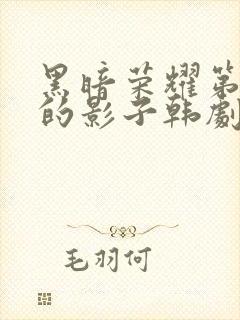 黑暗荣耀第
的影子韩劇
毛羽何